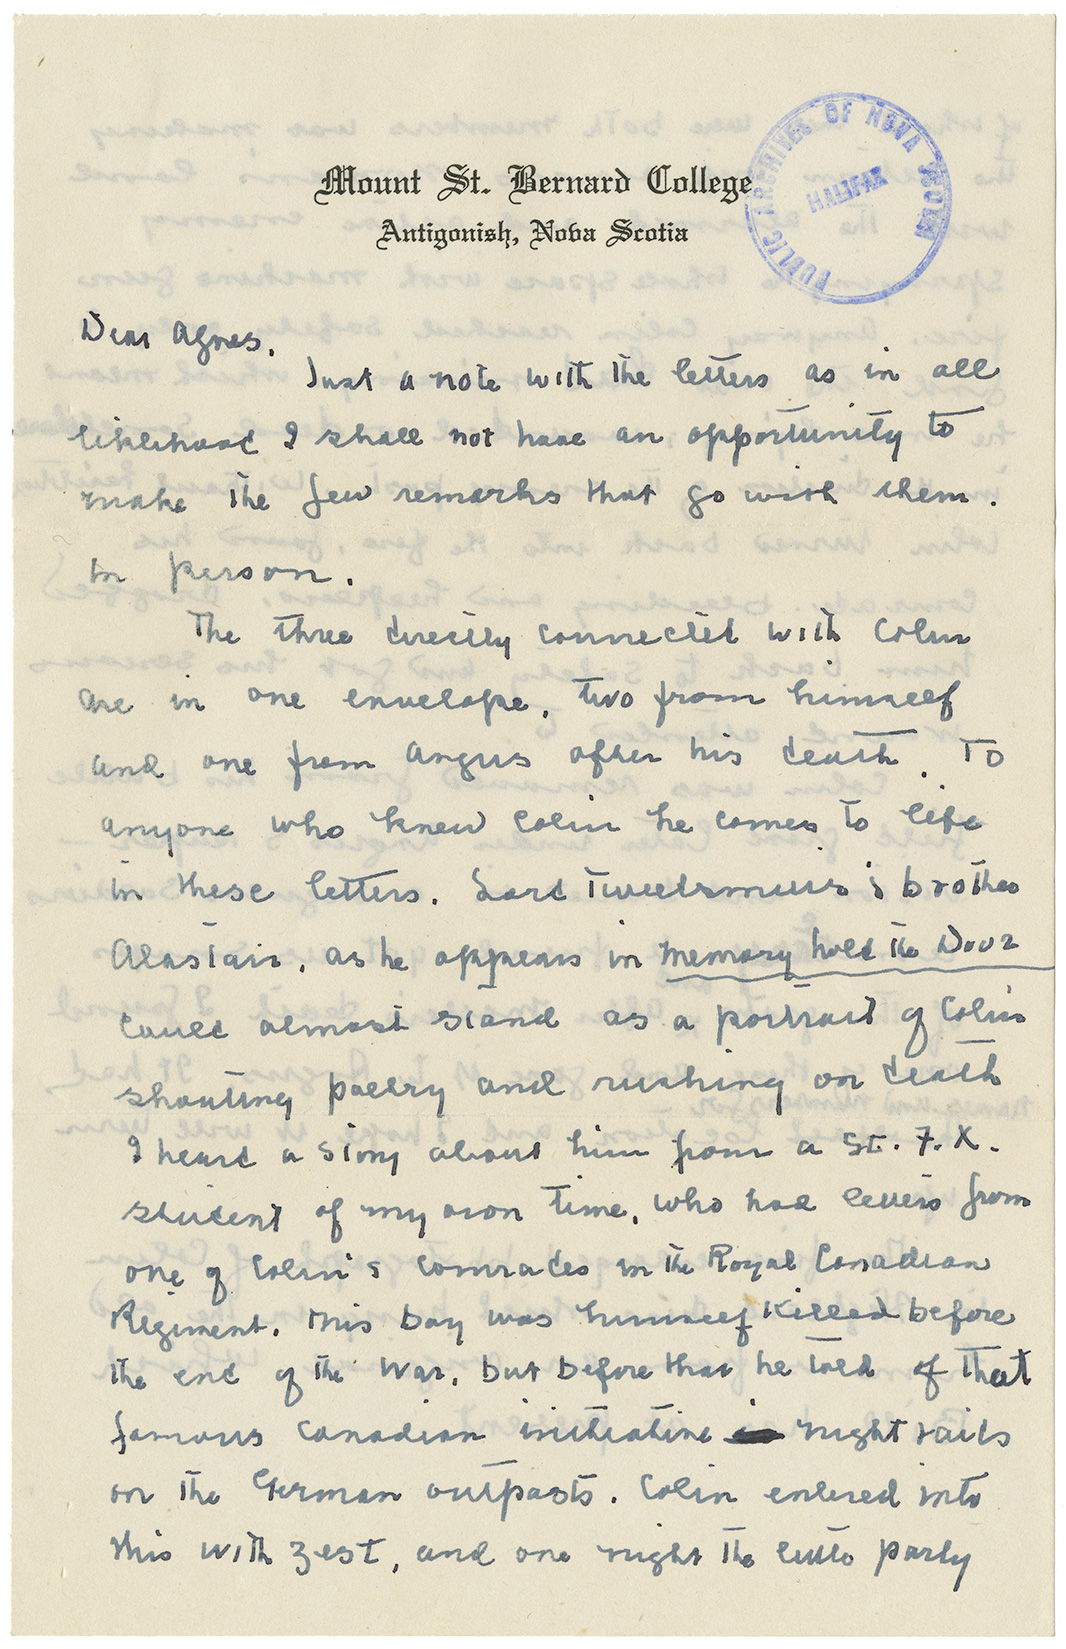 Mount St. Bernard College
Antigonish, Nova Scotia
PUBLIC ARCHIVES OF NOVA SCOTIA
HALIFAX
Dear Agnes,
Just a note with the letters as in all
likelihood I shall not have an opportunity to
make the few remarks that go with them.
in person.
The three directly connected with Colin
are in one envelope, two from himself
and one from Angus after his death. To
anyone who knew Colin he comes to life
in these letters. Lord Tweedsmuir's brother
Alastair, as he appears in Memory hold the Door
could almost stand as a portrait of Colin
shouting poetry and rushing on death
I heard a story about him from a St. F. X.
student of my own time, who had letters from
one of Colin's comrades in the Royal Canadian
Regiment. This boy was himself killed before
the end of the War, but before that he told of that
famous Canadian initiative night raids
on the German outposts. Colin entered into
this with zest, and one night the little party